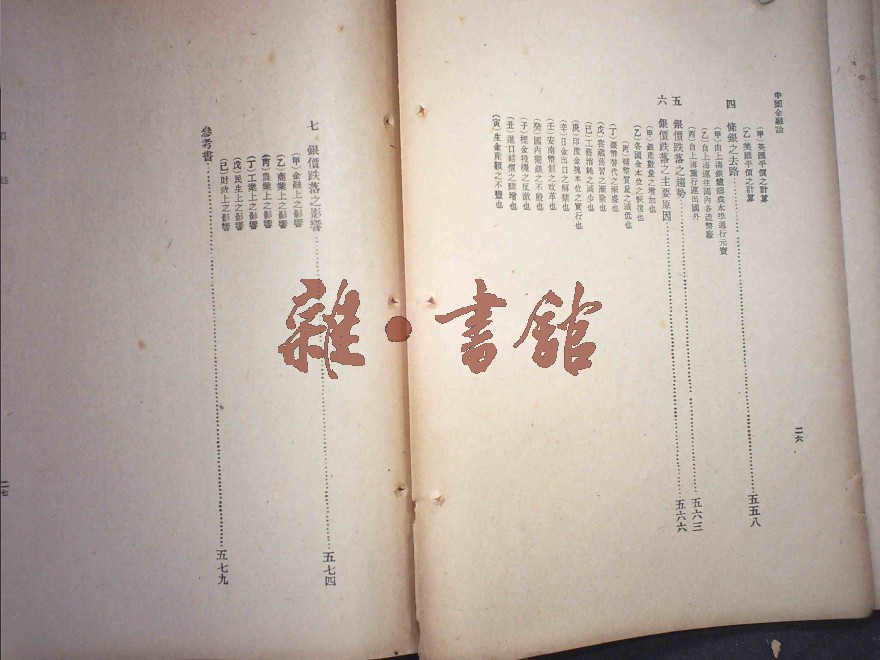 中國金融論
(甲)英匯平價之計算
(乙)美匯平價之計算
四 條銀之去路……五五八
(甲)由上海銀爐鎔成本地通行元寶
(乙)自上海運往國內各造幣廠
(丙)自上海重行運出國外
五 銀價跌落之趨勢……五六三
六 銀價跌落之主要原因……五六六
(甲)銀產數量之增加也
(乙)各國金本位之恢復也
(丙)輔幣質量之減低也
(丁)紙幣替代之漸盛也
(戊)窖藏舊習之漸除也
(己)工藝消耗之減少也
(庚)印度金塊本位之實行也
(辛)日金出口之解禁也
(壬)安南幣制之改革也
(癸)國內需銀之不殷也
(子)標金投機之反激也
(丑)進口結價之驟增也
(寅)生金產額之不豐也
二六
七 銀價跌落之影響……五七四
(甲)金融上之影響
(乙)商業上之影響
(丙)農業上之影響
(丁)工業上之影響
(戊)民生上之影響
(己)財政上之影響
參考書……五七九
二七
雜·書館